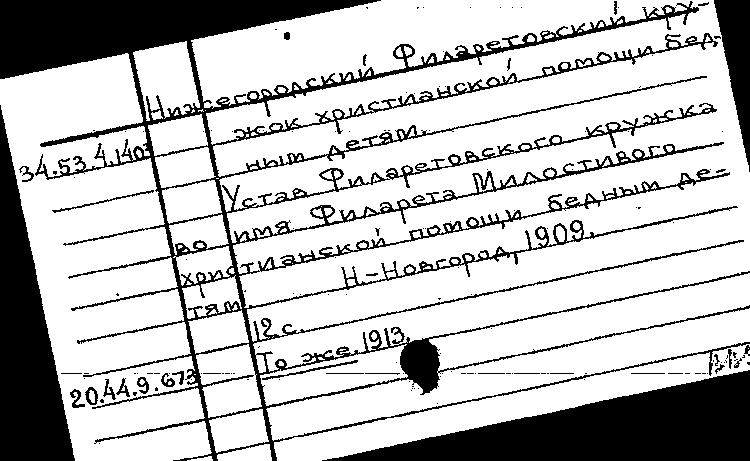 Нижегородский Филаретовский кру-
жок христианской помощи бед-
ным детям.
34.53.4.140
Устав Филаретовского кружка
во имя Филарета Милостивого
христианской помощи бедным де=
тям. Н.-Новгород, 1909.
12 с.
20.44.9.673 То же. 1913.